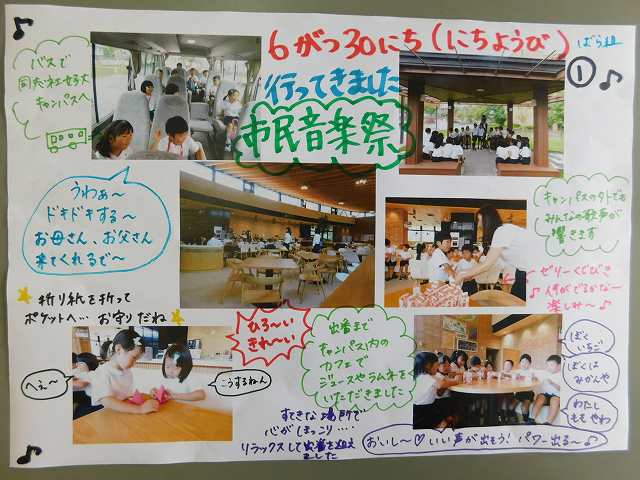 6がつ30にち(にちようび)
ばら組
①
行ってきました
市民音楽祭
バスで
同志社女子大
キャンパスへ
うわぁ〜
ドキドキする〜
お母さん、お父さん
来てくれるで〜
キャンパスの外でも
みんなの歌声が
響きます
ゼリーくじびき
何がでるかな〜
楽しみ〜♪
折り紙を折って
ポケットへ… お守りだね
ひろ〜い
きれ〜い
出番まで
キャンパス内の
カフェで
ジュースやラムネを
いただきました
へぇ〜
こうするねん
すてきな場所で
心がほっこり….
リラックスして出番を迎え
ました
ぼく
いちご
ぼくは
みかんや
わたし
ももやわ
おいし〜♡いい声が出そう! パワー出る〜♪